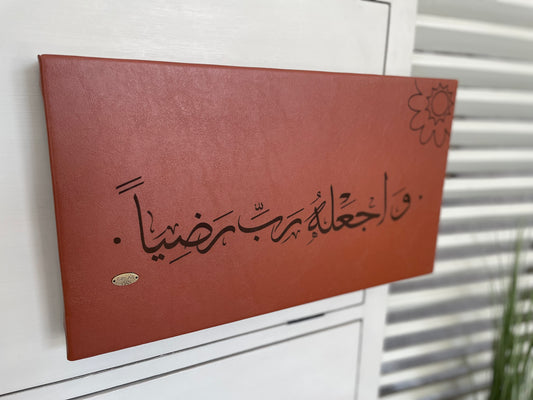 وَاجْعَلْهُ رَبِّ رَضِيَاً